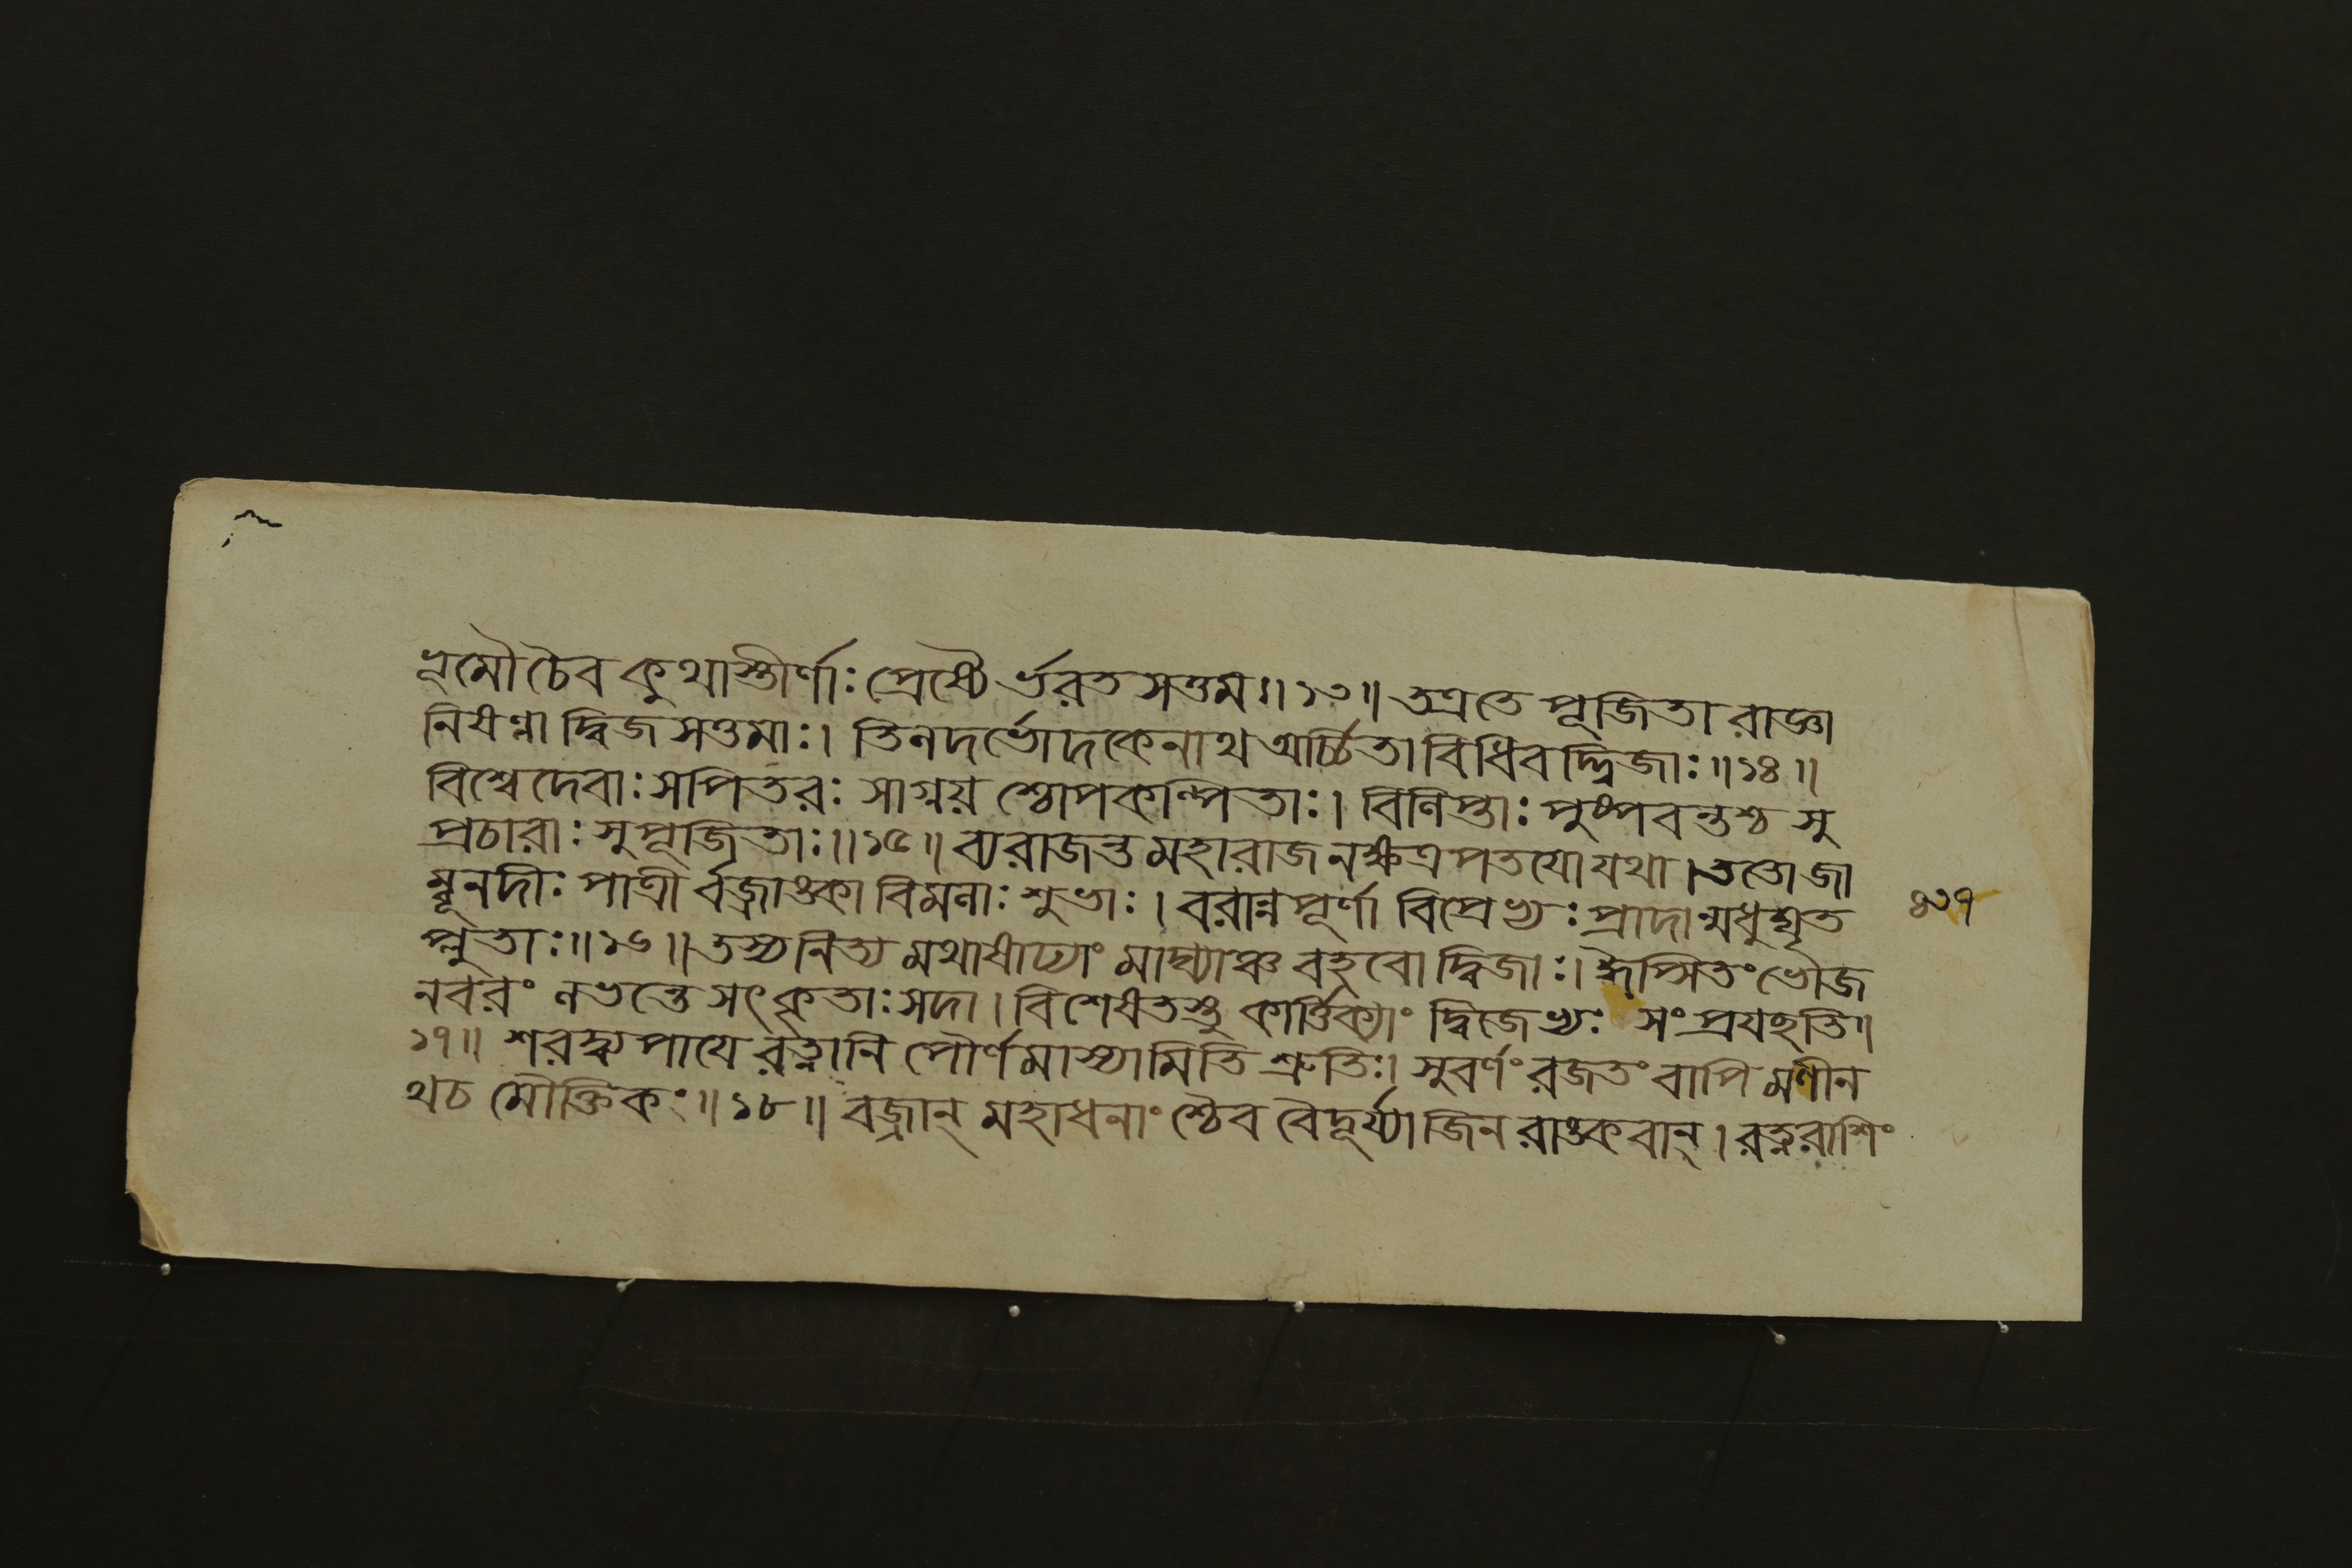 ভূমৌ চৈব কুথাস্তীর্ণাঃ প্রেষ্যৈ র্ভরত সত্তম ॥ ১৩ ॥ তত্রতে পূজিতা রাজ্ঞা
নিষণ্ণা দ্বিজ সত্তমাঃ । তিলদর্ভোদকেনাথ অর্চ্চিতা বিধিবদ্দ্বিজাঃ ॥ ১৪ ॥
বিশ্বেদেবাঃ সপিতরঃ সাগ্নয় শ্চোপকল্পিতাঃ । বিলিপ্তাঃ পুষ্পবন্তশ্চ সু
প্রচারাঃ সুপূজিতাঃ ॥ ১৫ ॥ ব্যরাজন্ত মহারাজ নক্ষত্র পতযো যথা । ততো জা
ম্বূনদীঃ পাত্রী র্বজ্রাঙ্কা বিমলাঃ শুভাঃ । বরান্নপূর্ণা বিপ্রেভ্যঃ প্রাদান্মধুঘৃত
প্লুতাঃ ॥ ১৬ ॥ তস্য নিত্য মথাষাঢ্যাং মাঘ্যাঞ্চ বহবো দ্বিজাঃ । ঈপ্সিতং ভোজ
নবরং লভন্তে সৎকৃতাঃ সদা । বিশেষতস্তু কার্ত্তিক্যাং দ্বিজেভ্যঃ সংপ্রযচ্ছতি ॥
১৭ ॥ শরদ্ব্যপাযে রত্নানি পৌর্ণমাস্যামিতি শ্রুতিঃ । সুবর্ণং রজতং বাপি মণীন
থচ মৌক্তিকং ॥ ১৮ ॥ বজ্রান্ মহাধনাং শ্চৈব বৈদূর্য্যাজিন রাঙ্কবান্ । রত্নরাশিং
৪৩৭